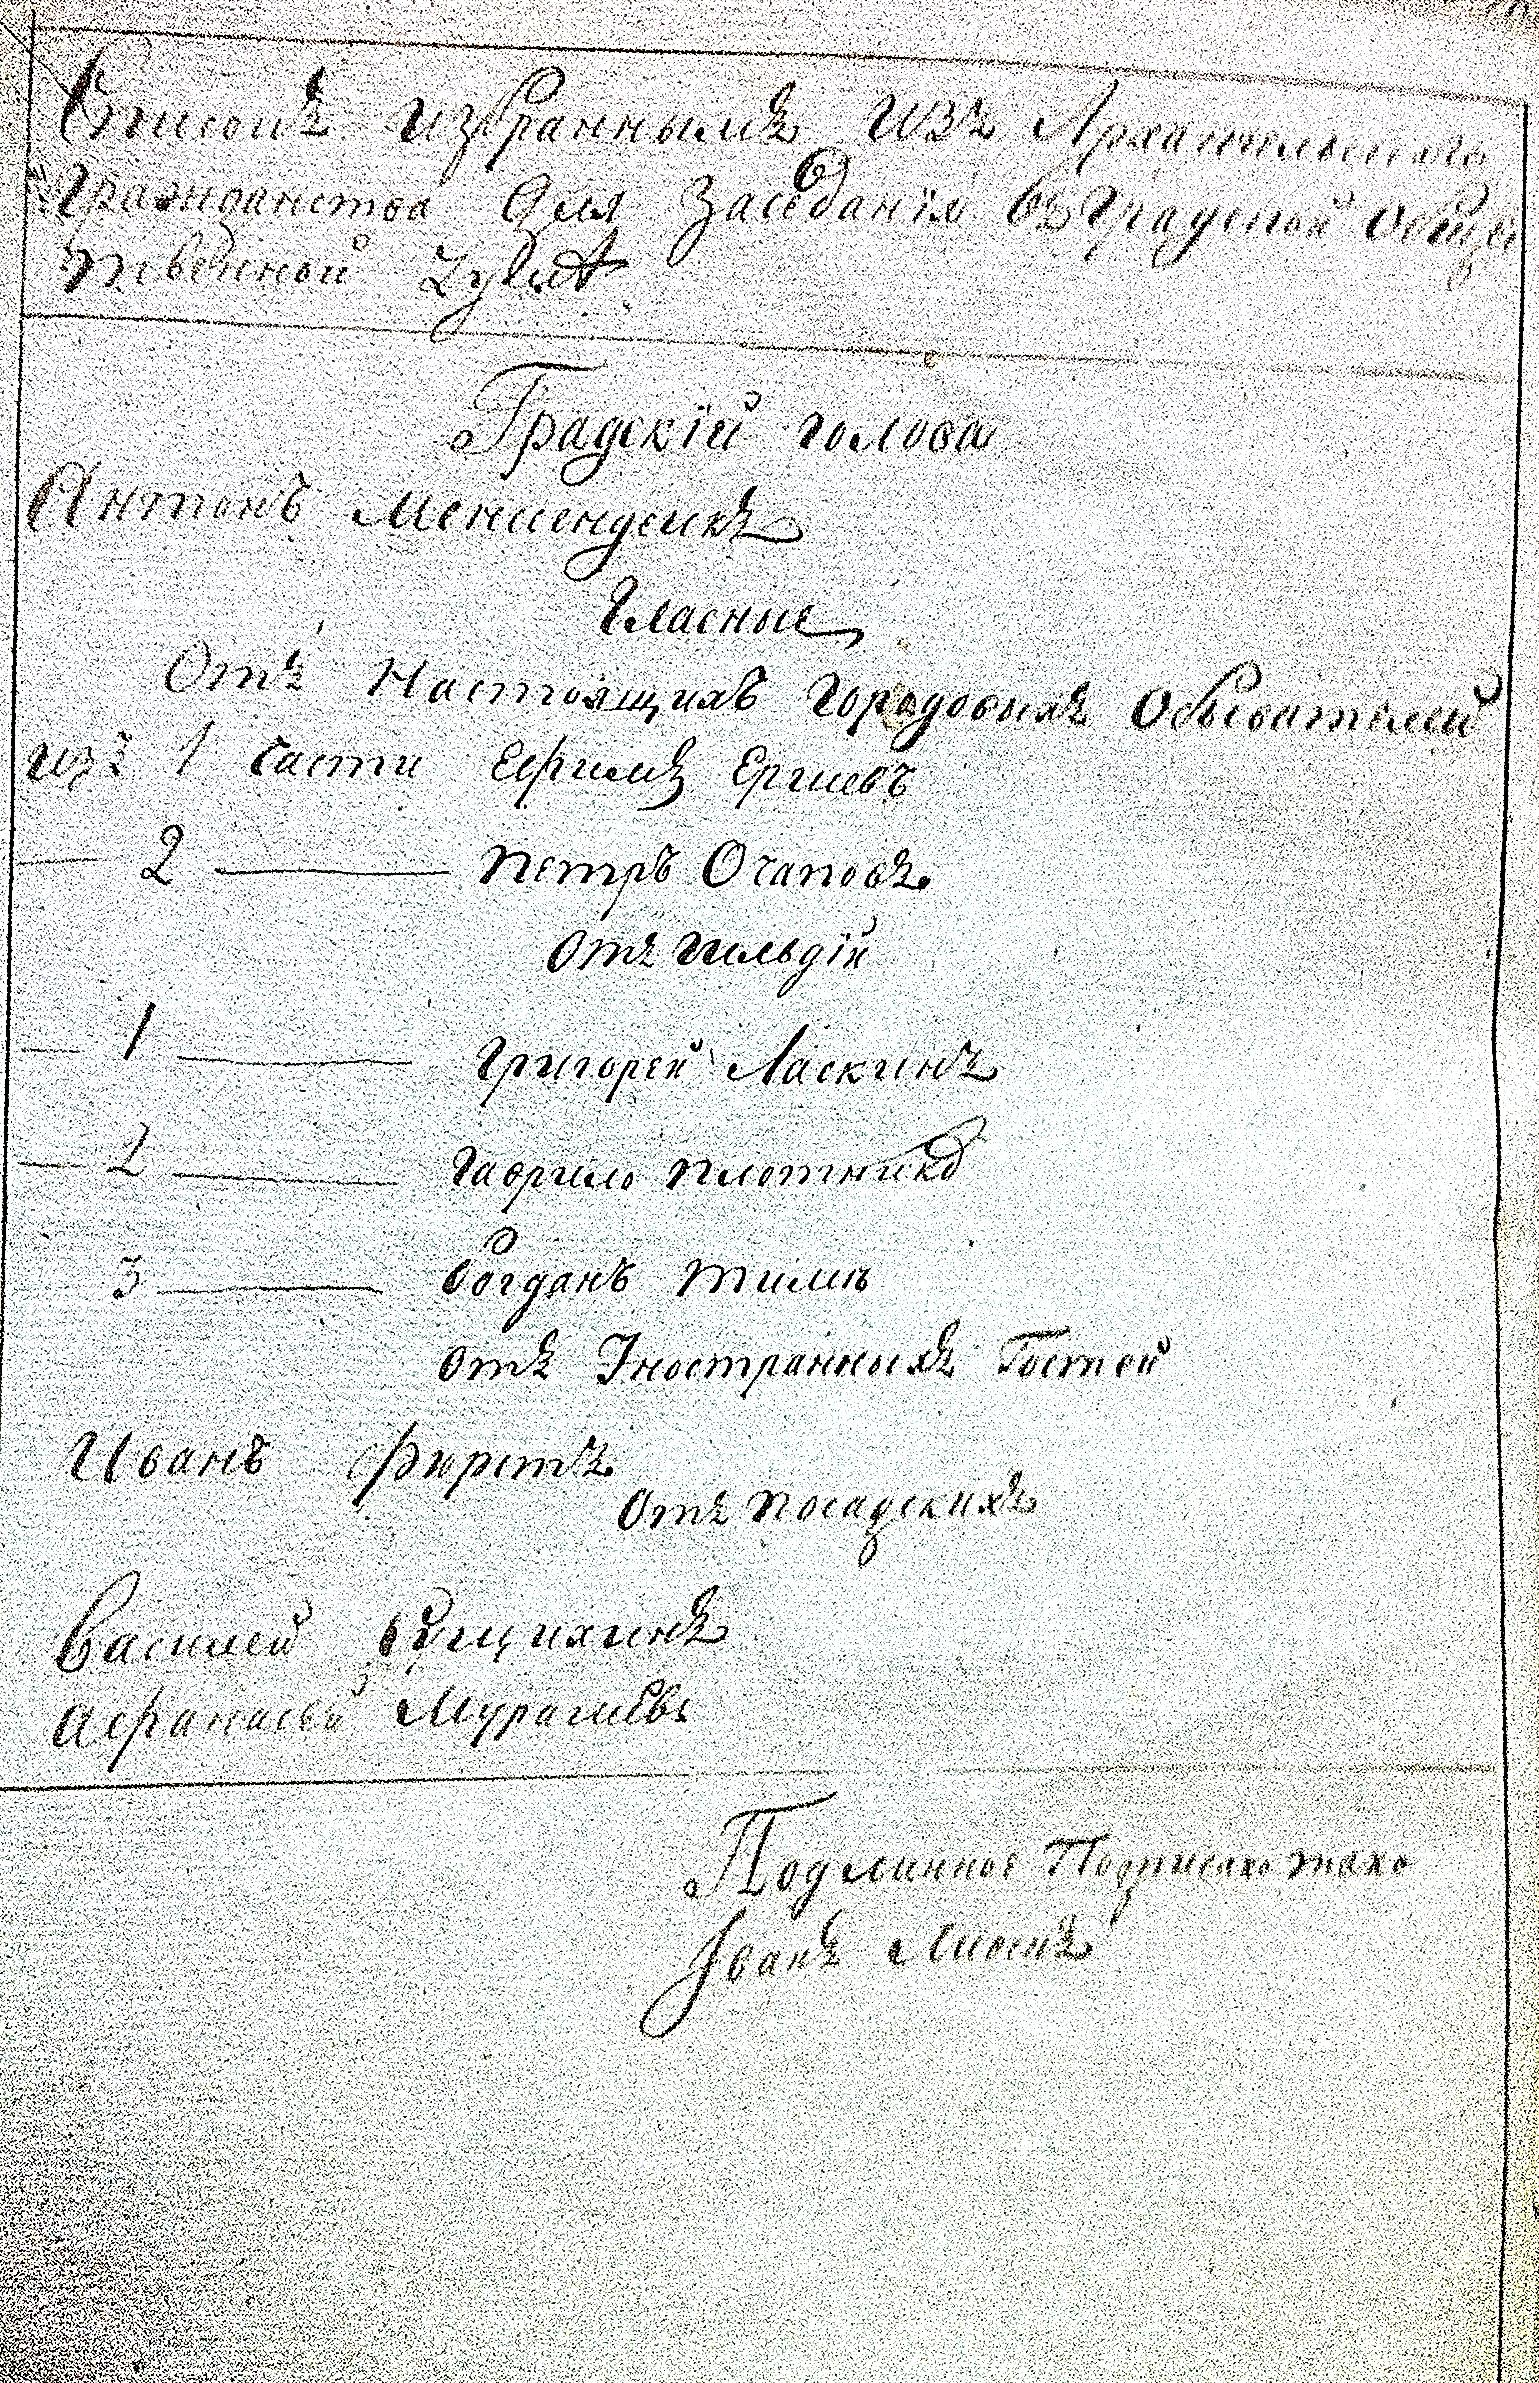 Списокъ избраннымъ изъ Архангельскаго
Гражданства Для Заседанія въ Градской общес
твенной Думе
Градскій голова
Антонъ Менсендейкъ
Гласные
Отъ Настоящихъ городовыхъ Обывателей
изъ 1 части Ефимъ Ергиевъ
2 Петръ Очаповъ.
Отъ гильдій
1 Григорей Ласкинъ
2 Гаврило Плотникъ
3 Богданъ
отъ Іностранныхъ Гостей
Иванъ Фюрстъ
Отъ посадскихъ
Василей
Афанасей
Подлинное Подписано тако
Іванъ